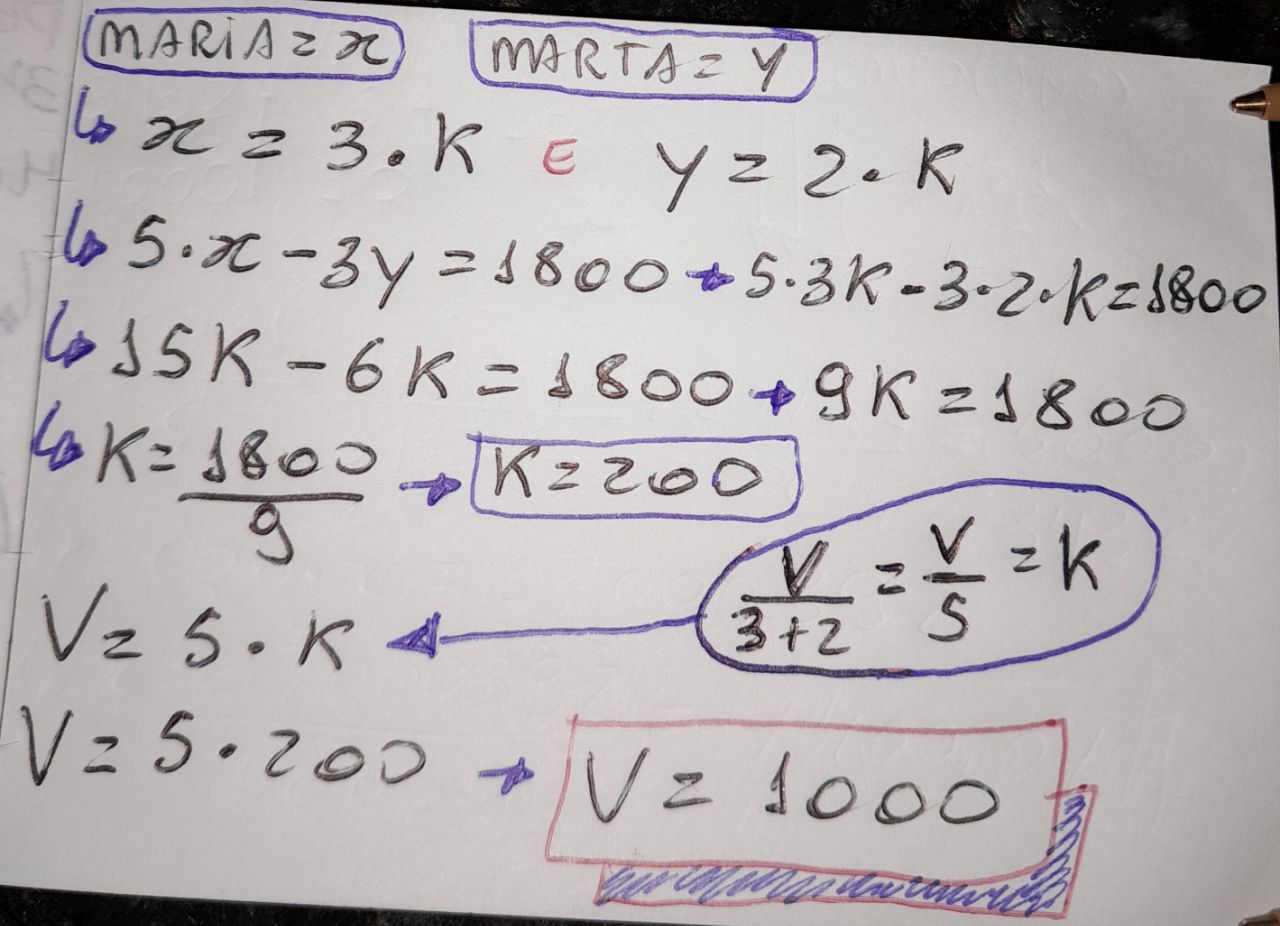 MARIA = x MARTA = y
↳ x = 3.K E y = 2.K
↳ 5.x - 3y = 1800 → 5.3K - 3.2.K = 1800
↳ 15K - 6K = 1800 → 9K = 1800
↳ K = 1800/9 → K = 200
V/(3+2) = V/5 = K
V = 5.K
V = 5.200 → V = 1000